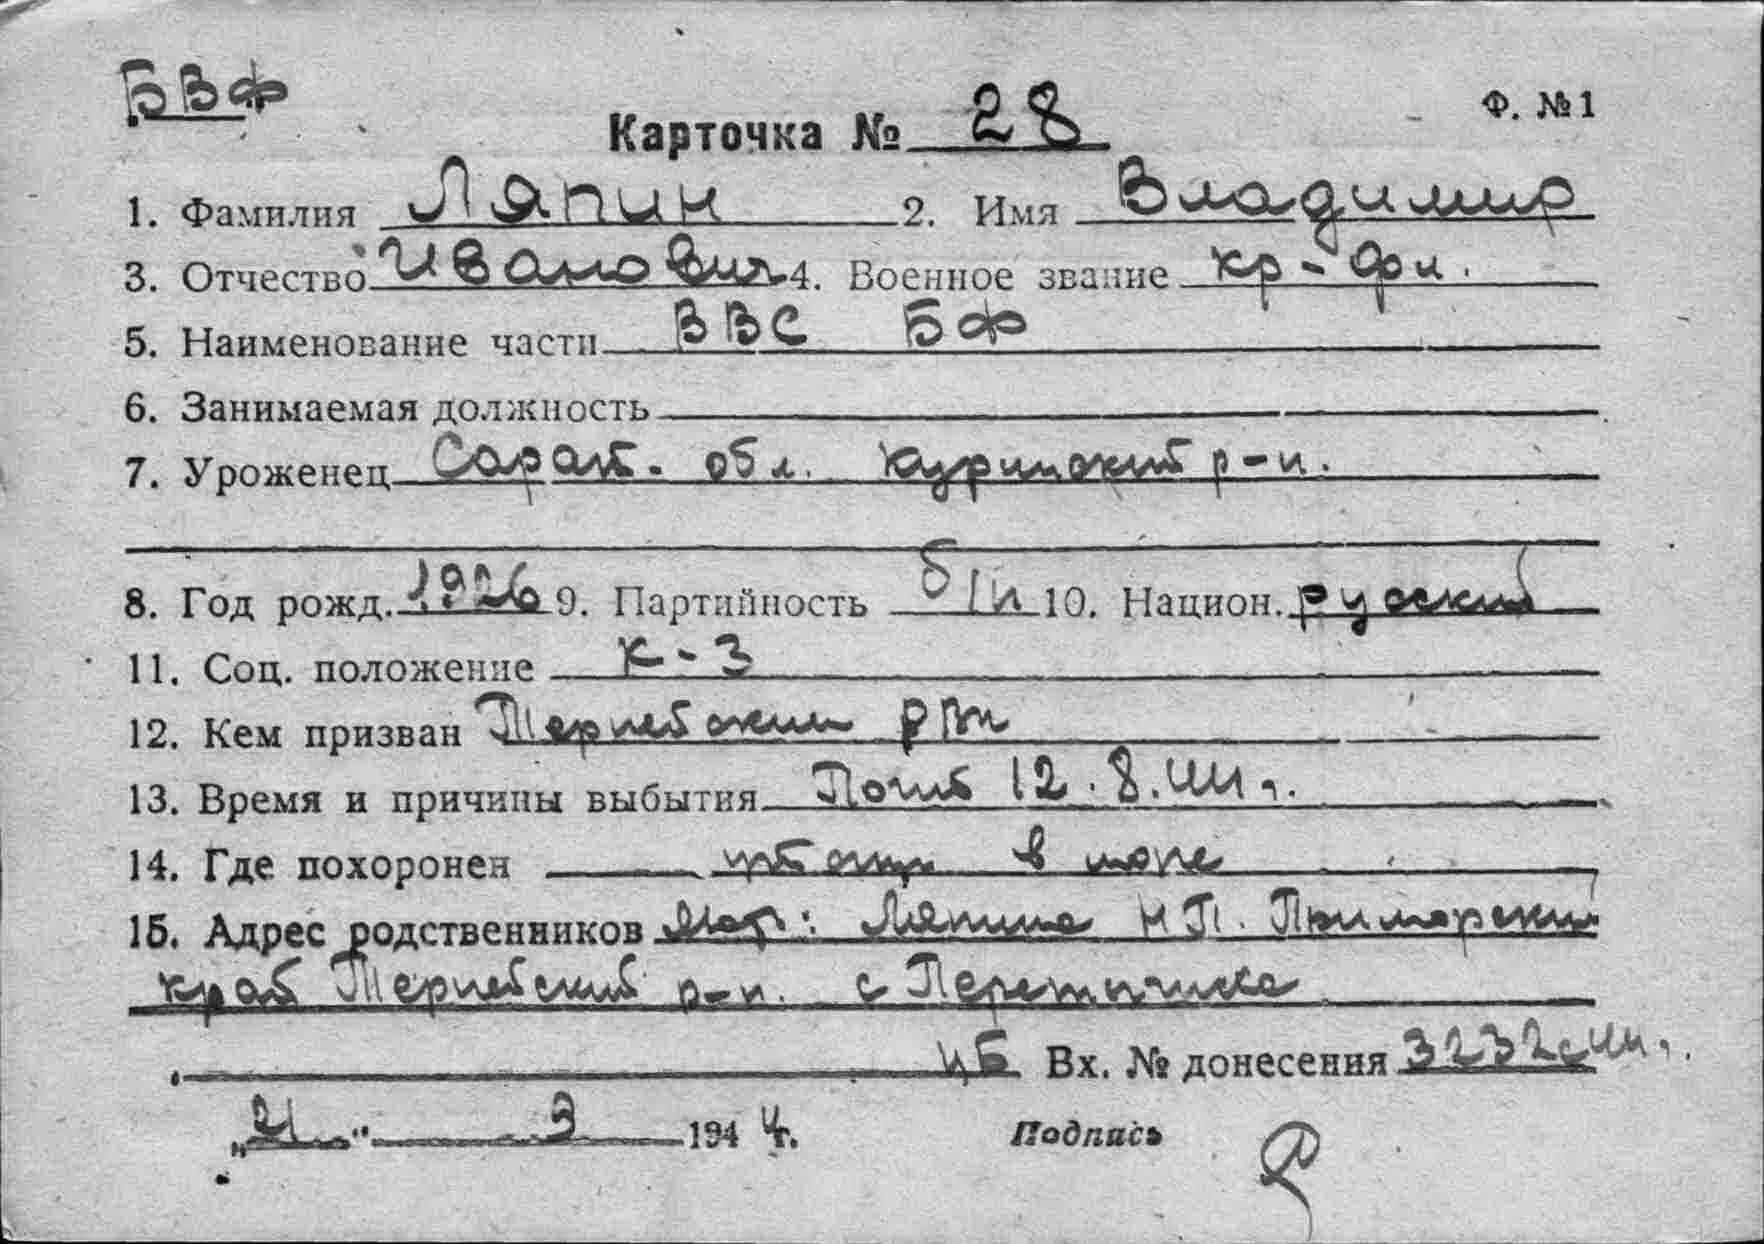 БВФ
Ф. №1
Карточка № 28
1. Фамилия Ляпин 2. Имя Владимир
3. Отчество Иванович 4. Военное звание кр-фл.
5. Наименование части ВВС БФ
6. Занимаемая должность
7. Уроженец Сарат. обл. Куринский р-н.
8. Год рожд. 1926 9. Партийность б/п 10. Национ. русский
11. Соц. положение к-з
12. Кем призван Тернейским РВК
13. Время и причины выбытия Погиб 12.8.44 г.
14. Где похоронен в море
15. Адрес родственников Мать: Ляпина Н П. Приморский
край Тернейский р-н. с Перетычиха
Вх. № донесения 3232с 44 г.
„21" 9 1944 г. Подпись